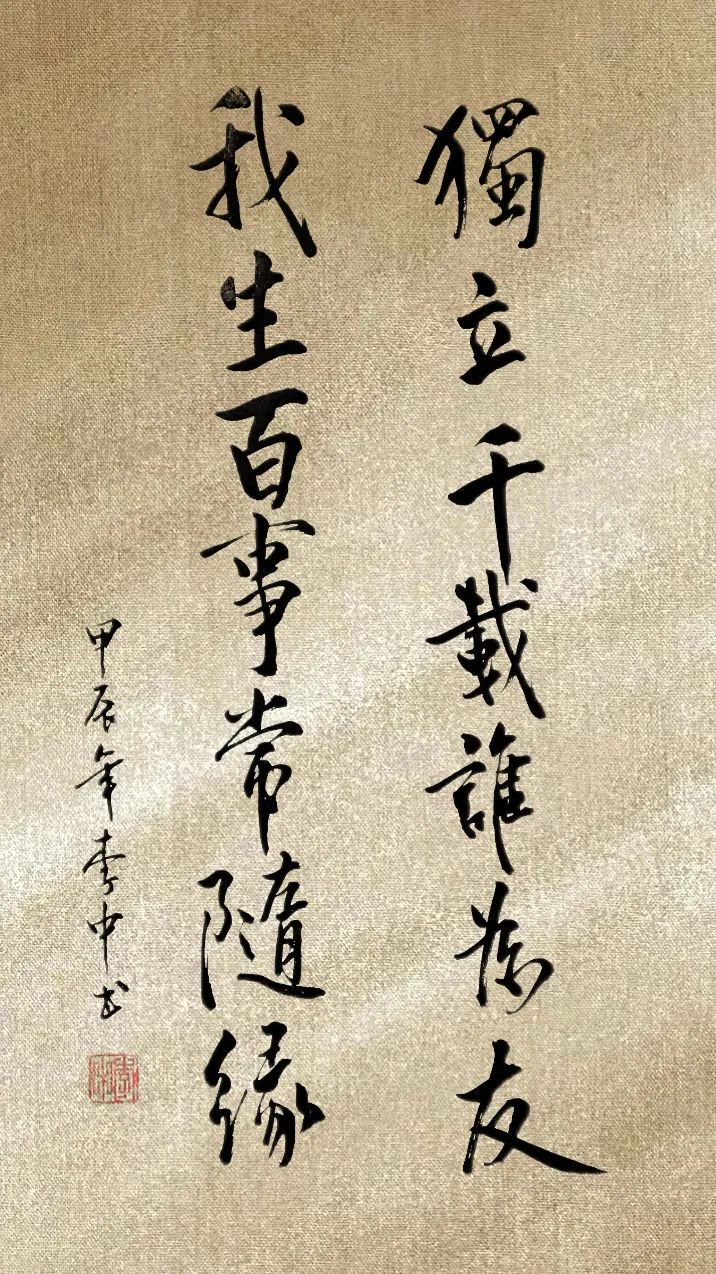 獨立千載誰為友
我生百事常隨緣
甲辰年李中书